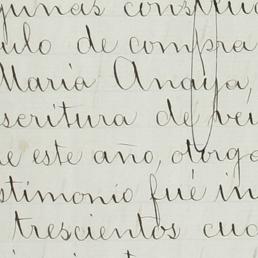 gunas constituc
ulo de compra
María Anaya,
scritura de ven
e este año, otorga
stimonio fué in
trescientos cua